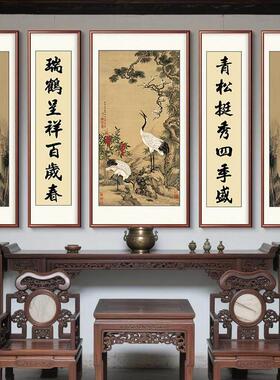 青松挺秀四季盛
瑞鶴呈祥百歲春